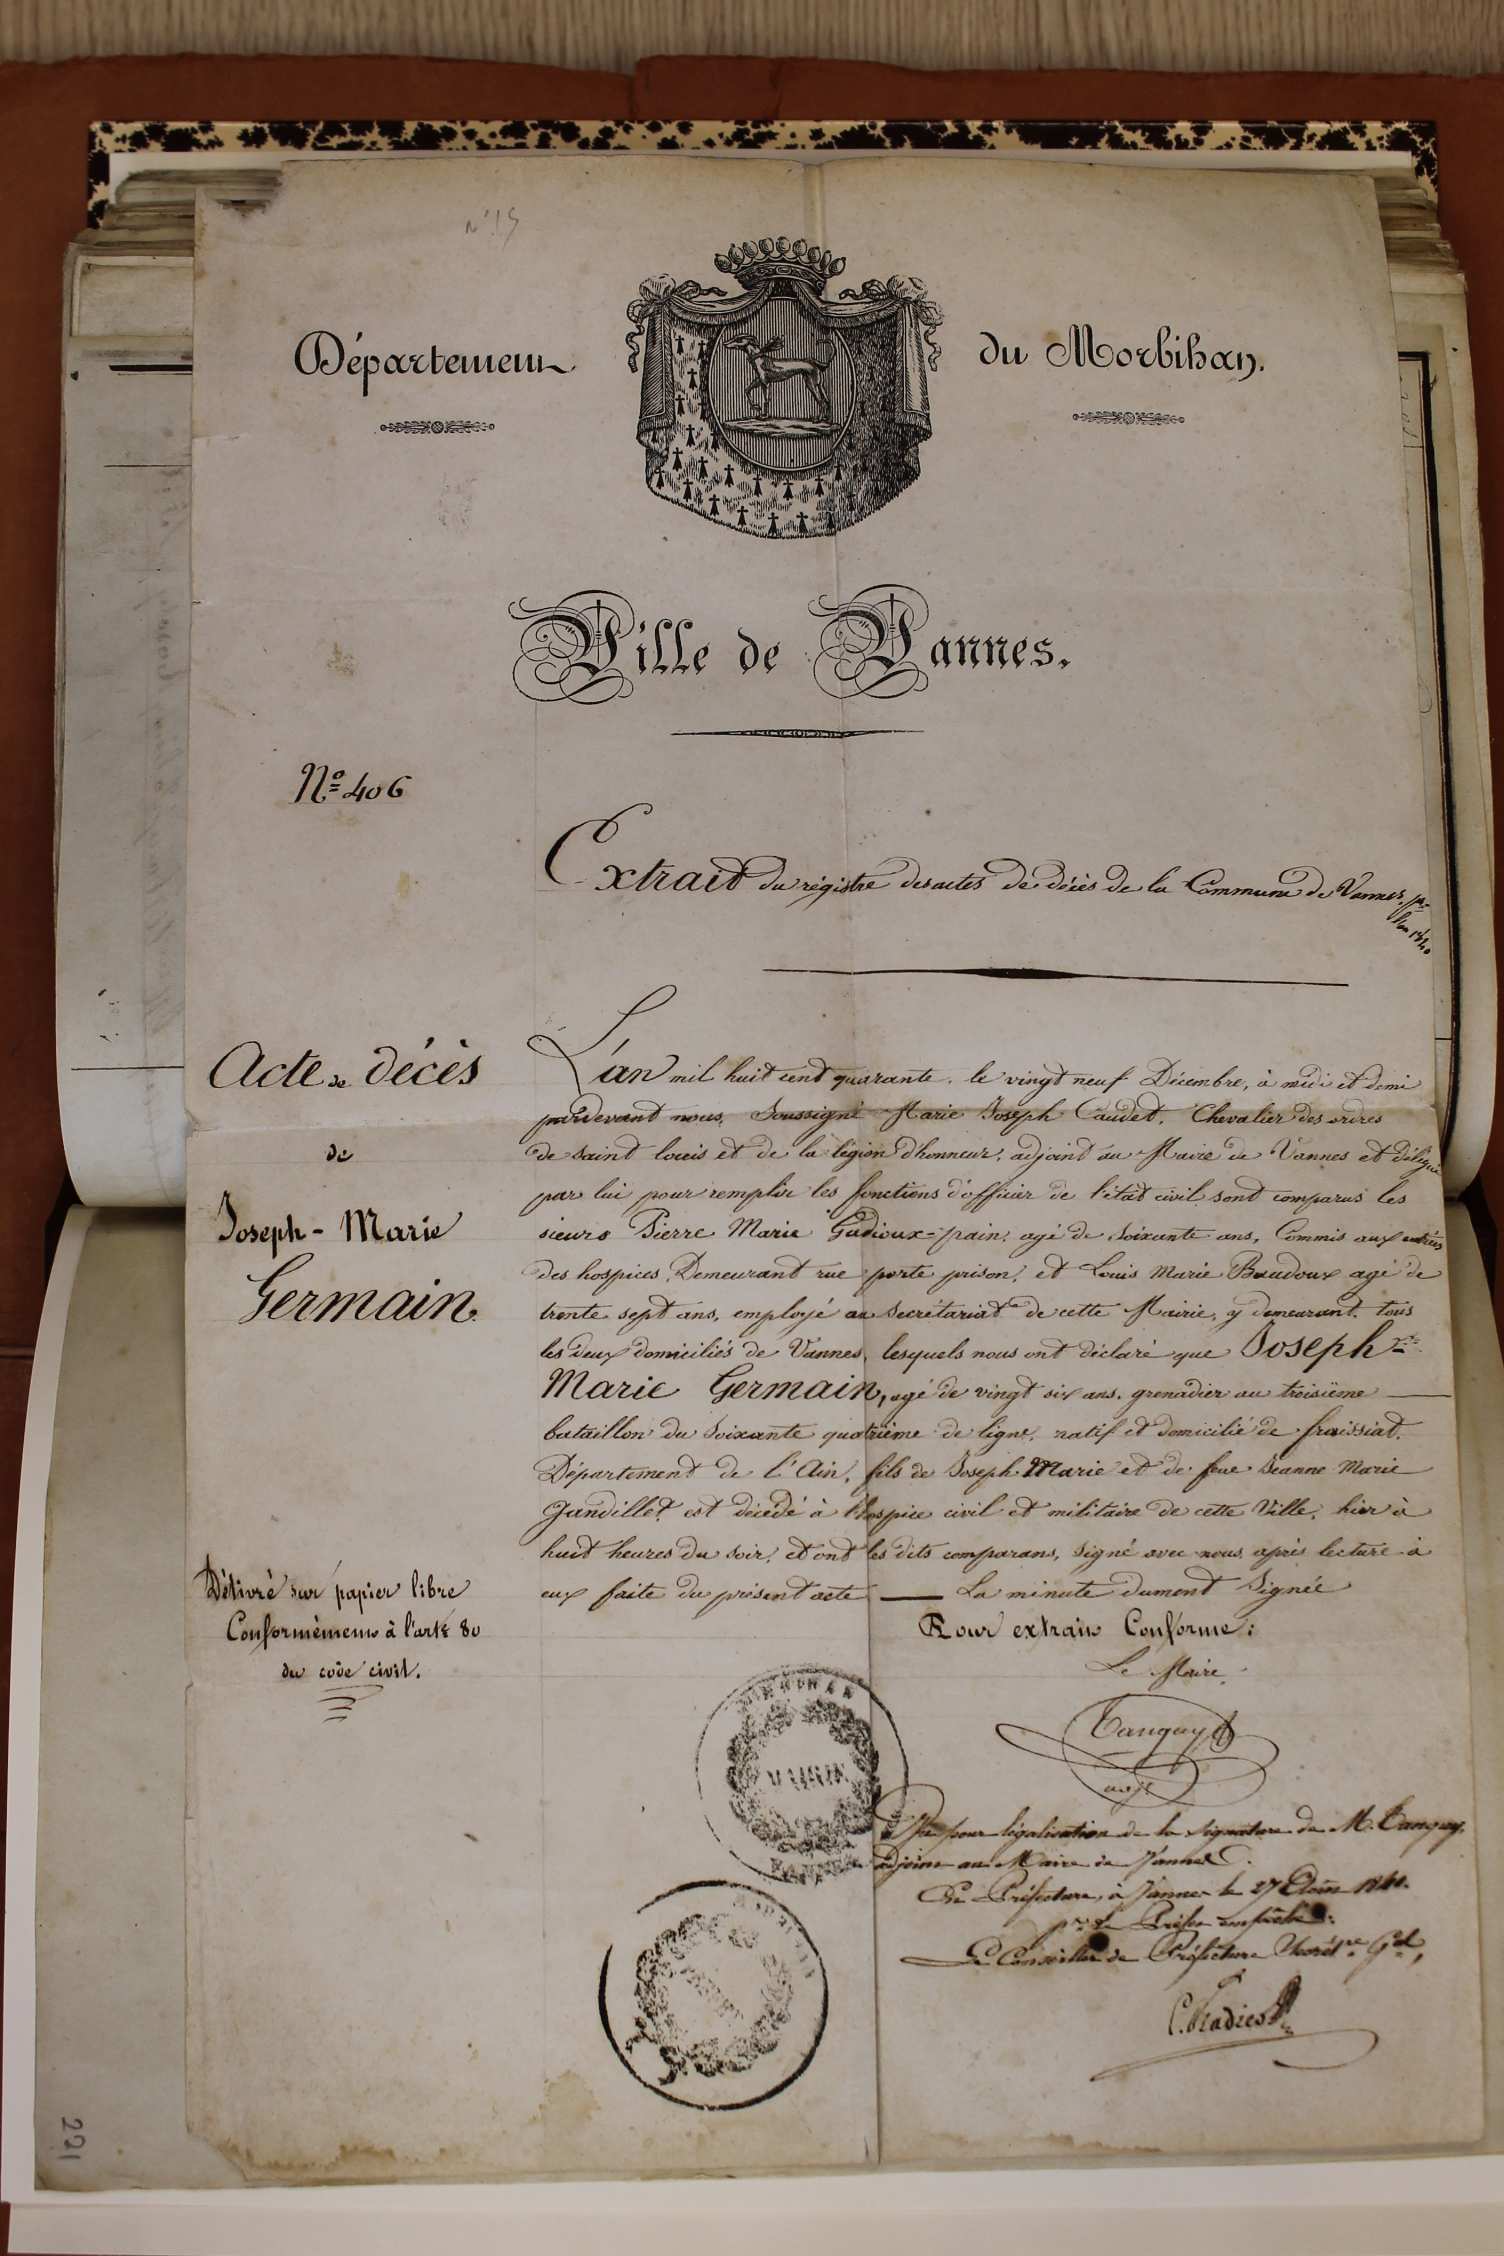 N° 15
Département
du Morbihan.
Ville de Vannes.
N° 406
Extrait du régistre des actes de décès de la Commune de Vannes, pr
l'an 1840
Acte de décès
de
Joseph - Marie
Germain.
L'an mil huit cent quarante, le vingt neuf Décembre, à midi et demi
pardevant nous, Soussigné Marie Joseph Caudet, Chevalier des ordres
de saint louis et de la légion d'honneur, adjoint au Maire de Vannes et délégué
par lui pour remplir les fonctions d'officier de l'état civil sont comparus les
sieurs Pierre Marie Gadioux-pain, agé de soixante ans, Commis aux entrées
des hospices, Demeurant rue porte prison, et Louis Marie Baudoux agé de
trente sept ans, employé au Secrétariat de cette Mairie, y demeurant, tous
les deux domiciliés de Vannes, lesquels nous ont déclaré que Joseph
Marie Germain, agé de vingt six ans, grenadier au troisième
bataillon du Soixante quatrième de ligne, natif et domicilié de fraissiat,
Département de l'Ain, fils de Joseph Marie et de feue Jeanne Marie
Gandillet, est décédé à l'hospice civil et militaire de cette Ville, hier à
huit heures du soir, et ont les dits comparans, signé avec nous, après lecture à
eux faite du présent acte La minute dument Signée
Délivré sur papier libre
Conformément à l'arte 80
du code civil.
Pour extrait Conforme:
Le Maire,
Tanguy
adjt
MAIRIE
Vu pour légalisation de la signature de M. Tanguy,
adjoint au Maire de Vannes.
En Préfecture, à Vannes le 27 1840.
pr Le Préfet empêché:
Le Conseiller de Préfecture Secrétre Gal,
221